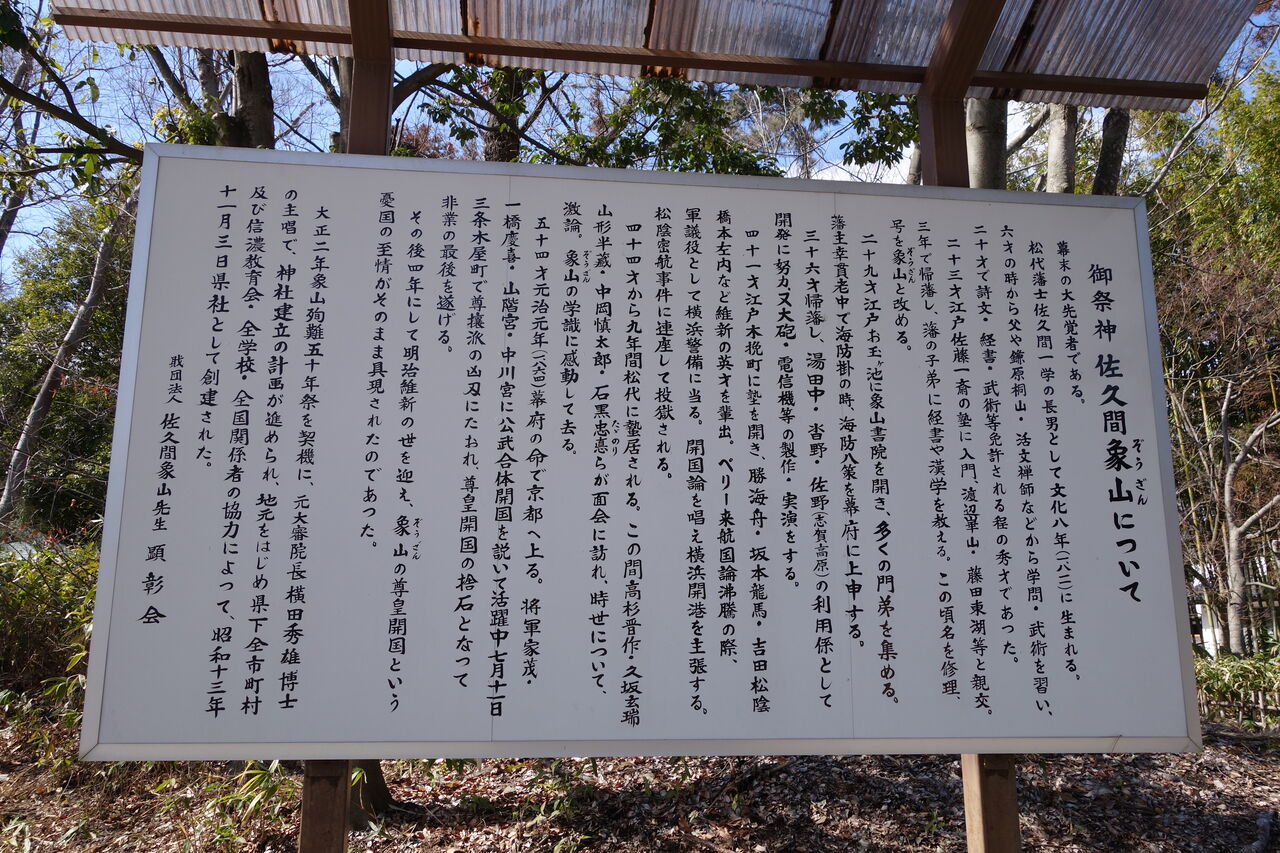 御祭神 佐久間象山について
ぞうざん
幕末の大先覚者である。
松代藩士佐久間一学の長男として文化八年(一八一一)に生まれる。
六才の時から父や鎌原桐山・活文禅師などから学問・武術を習い、
二十才で詩文・経書・武術等免許される程の秀才であった。
二十三才江戸佐藤一斎の塾に入門、渡辺崋山・藤田東湖等と親交。
三年で帰藩し、藩の子弟に経書や漢学を教える。この頃名を修理、
号を象山と改める。
ぞうざん
二十九才江戸お玉ヶ池に象山書院を開き、多くの門弟を集める。
藩主幸貫老中で海防掛の時、海防八策を幕府に上申する。
三十六才帰藩し、湯田中・沓野・佐野(志賀高原)の利用係として
開発に努力又大砲・電信機等の製作・実演をする。
四十一才江戸木挽町に塾を開き、勝海舟・坂本龍馬・吉田松陰
橋本左内など維新の英才を輩出。ペリー来航国論沸騰の際、
軍議役として横浜警備に当る。開国論を唱え横浜開港を主張する。
松陰密航事件に連座して投獄される。
四十四才から九年間松代に蟄居される。この間高杉晋作・久坂玄瑞
山形半蔵・中岡慎太郎・石黒忠悳らが面会に訪れ、時世について、
ただのり
激論。象山の学識に感動して去る。
ぞうざん
五十四才元治元年(一八六四)幕府の命で京都へ上る。将軍家茂・
一橋慶喜・山階宮・中川宮に公武合体開国を説いて活躍中七月十一日
三条木屋町で尊攘派の凶刃にたおれ、尊皇開国の捨石となって
非業の最後を遂げる。
その後四年にして明治維新の世を迎え、象山の尊皇開国という
ぞうざん
憂国の至情がそのまま具現されたのであった。
大正二年象山殉難五十年祭を契機に、元大審院長横田秀雄博士
の主唱で、神社建立の計画が進められ、地元をはじめ県下全市町村
及び信濃教育会・全学校・全国関係者の協力によって、昭和十三年
十一月三日県社として創建された。
財団法人 佐久間象山先生顕彰会